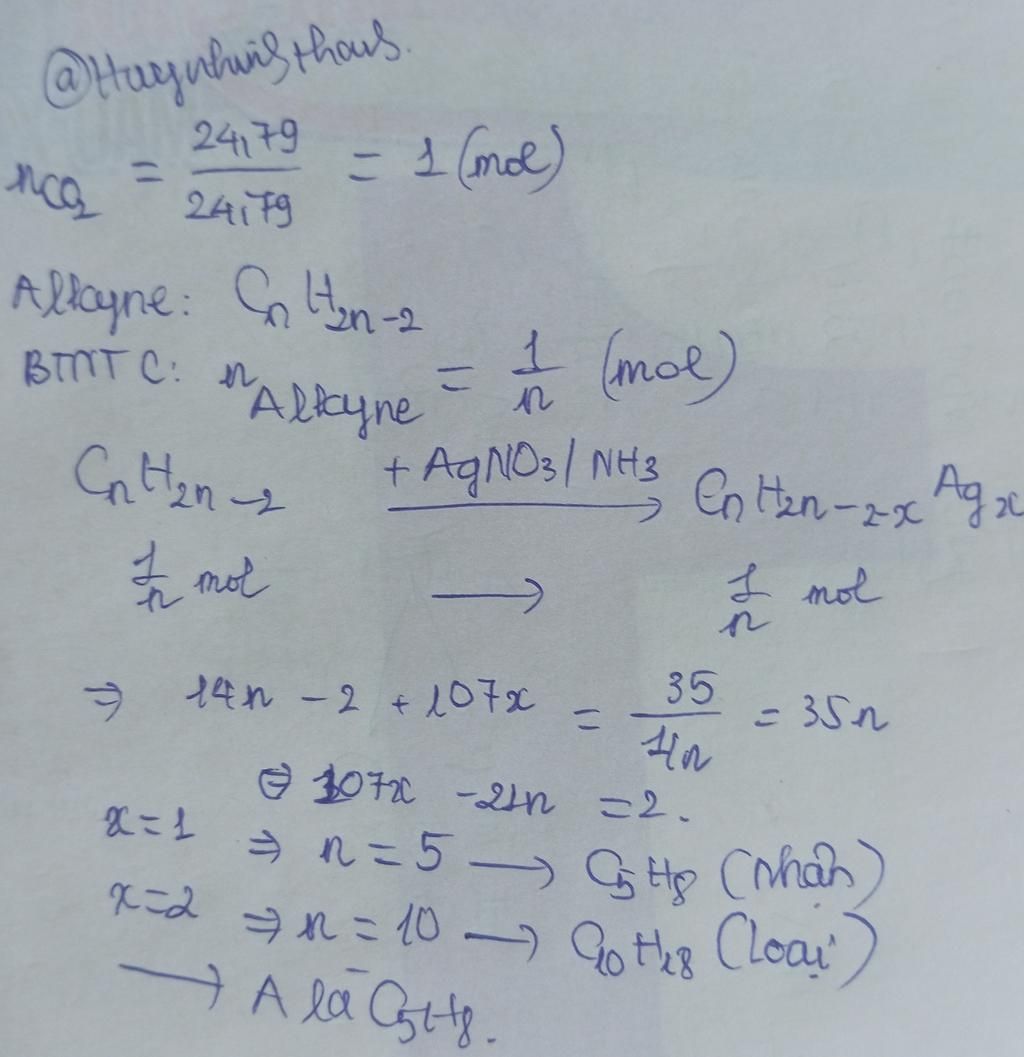 @Huynhwisthous.
nCO2 = 24,79 / 24,79 = 1 (mol)
Alkyne: CnH2n-2
BTNT C: nAlkyne = 1/n (mol)
CnH2n-2 + AgNO3/NH3 → CnH2n-2-xAgx
1/n mol → 1/n mol
⇒ 14n - 2 + 107x = 35 / 1/n = 35n
⇔ 107x - 21n = 2.
x=1 ⇒ n = 5 → C5H8 (Nhận)
x=2 ⇒ n = 10 → C10H18 (Loại)
→ A là C5H8.